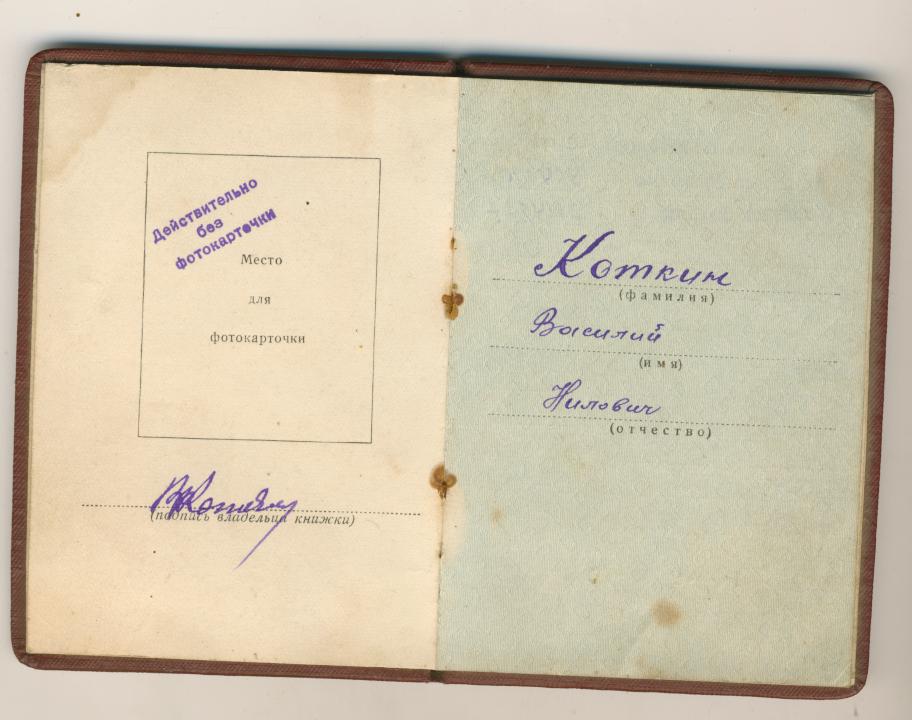 Действительно
без
фотокарточки
Место
для
фотокарточки
(подпись владельца книжки)
Коткин
(фамилия)
Василий
(имя)
Нилович
(отчество)